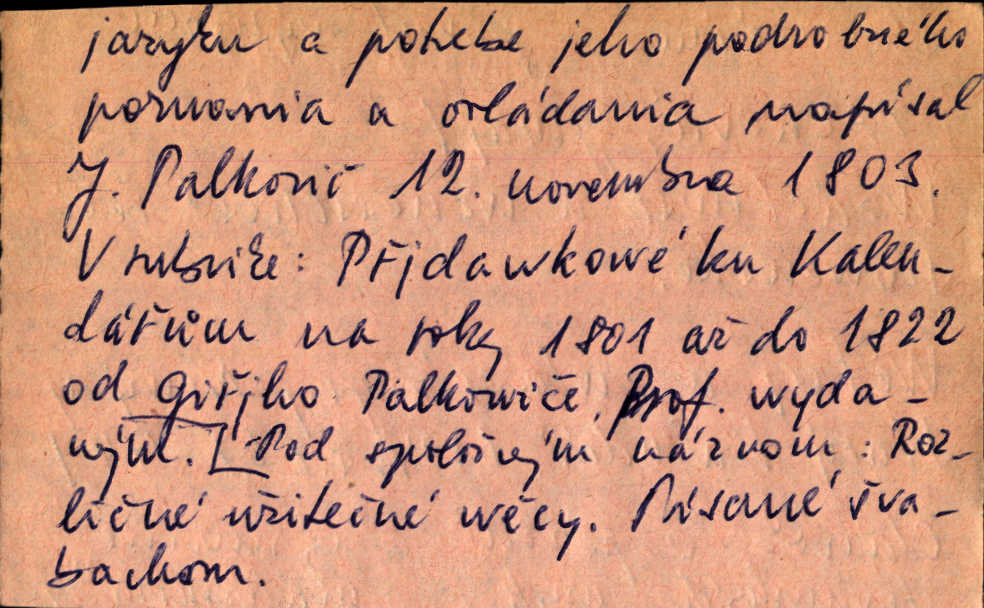 jazyku a potrebe jeho podrobného
poznania a ovládania napísal
J. Palkovič 12. novembra 1803.
V rubrike: Přjdawkowé ku Kalen-
dářům na roky 1801 až do 1822
od Giřjho Palkowiče, Prof. wyda-
ným. [Pod spoločným názvom: Roz-
ličné užitečné wěcy. Písané šva-
bachom.